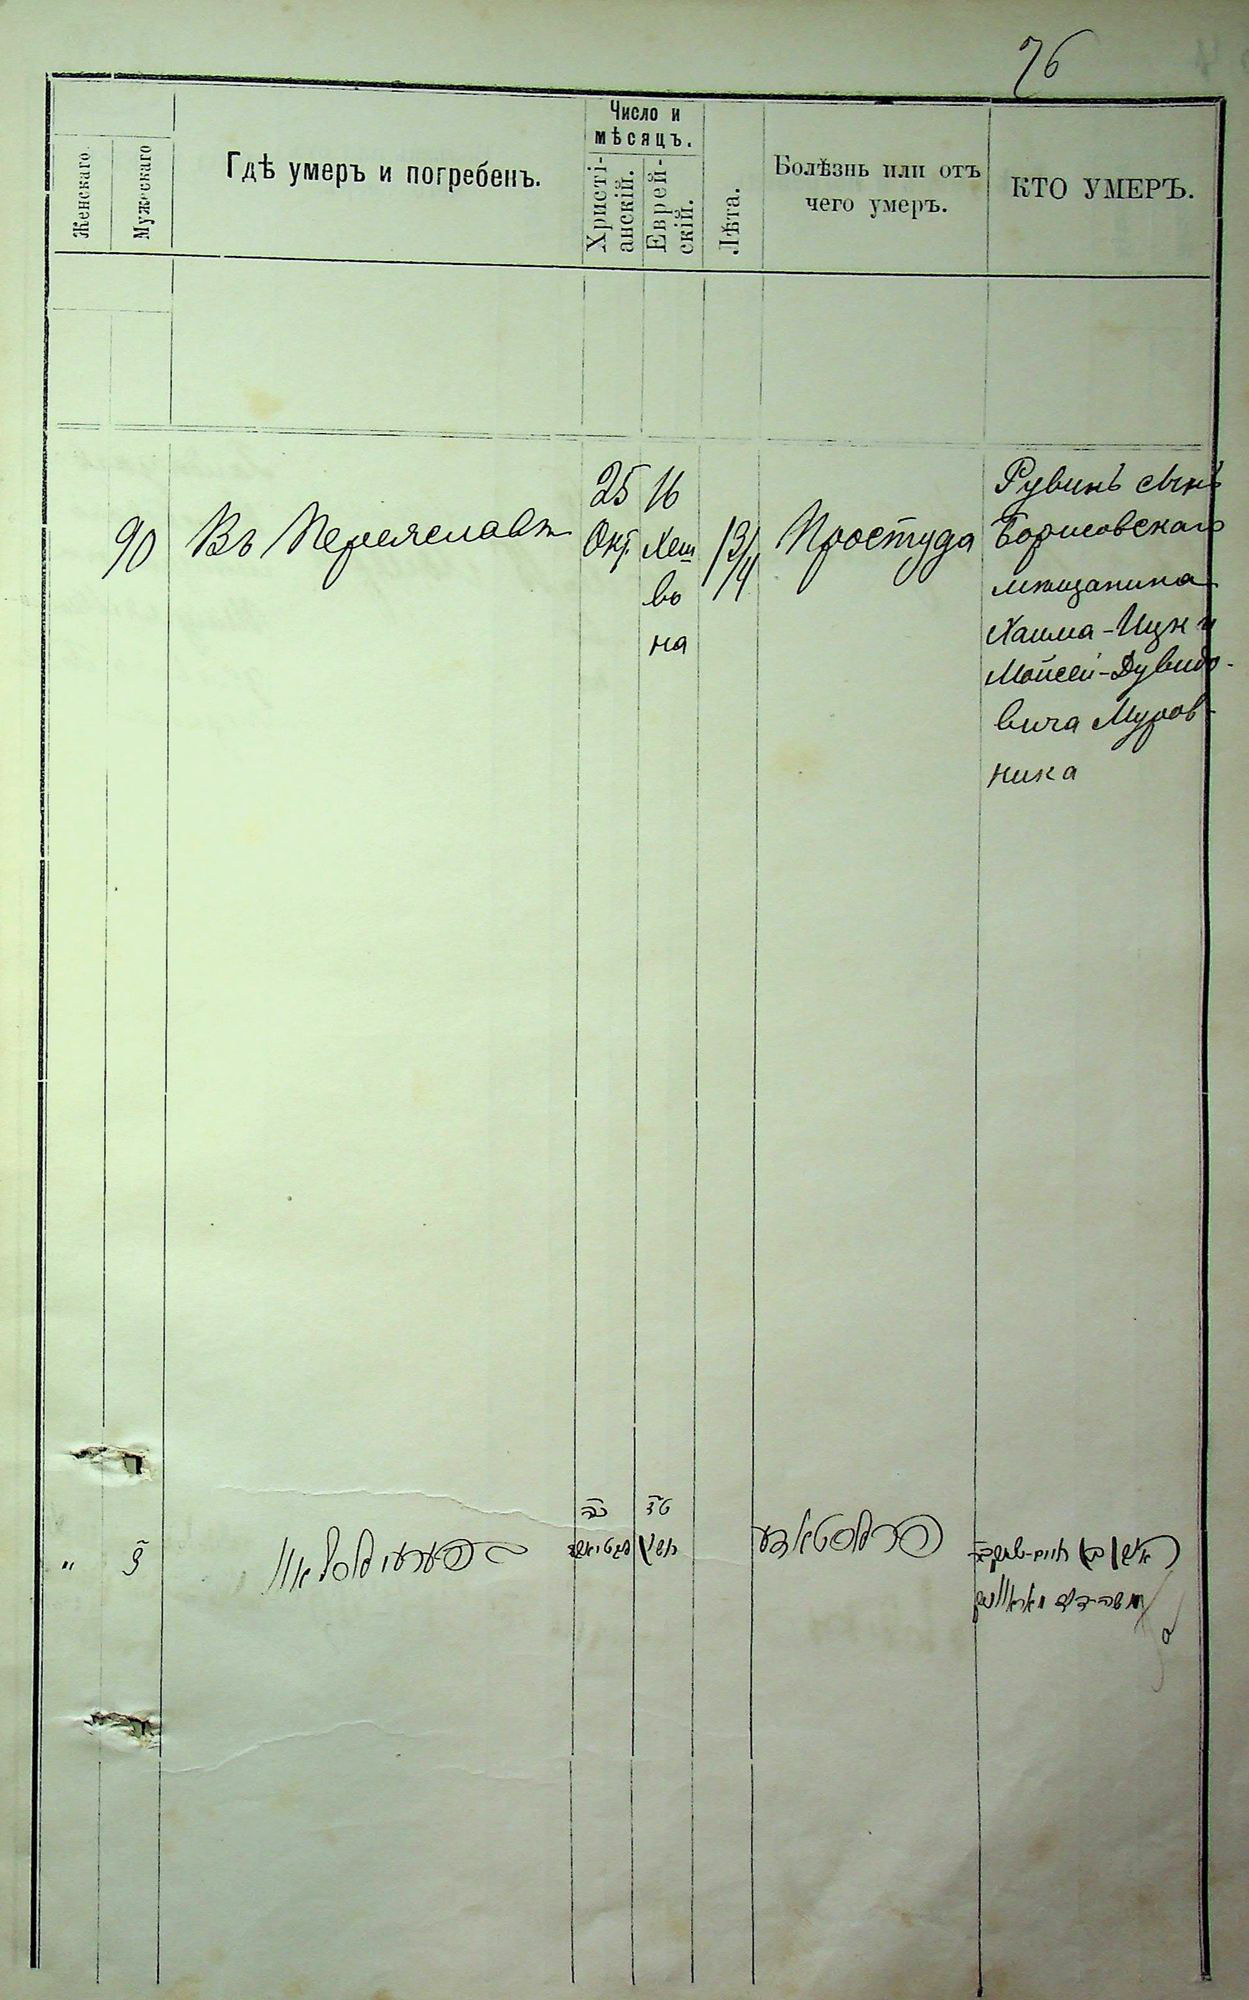 76
Женскаго.
Мужескаго
Гдѣ умеръ и погребенъ.
Число и
мѣсяцъ.
Христі-
анскій.
Еврей-
скій.
Лѣта.
Болѣзнь или отъ
чего умеръ.
КТО УМЕРЪ.
90
Въ Переяславѣ
25
Окт
16
Хеш
во
на
1 3/4
Простуда
Рувинъ сынъ
Борисовскаго
мѣщанина
Хаима-Ицки
Мойсей-Дувидо-
вича Муров-
ника
"
צ
כה
טז
חשון
ראובן בן חיים-יצחק